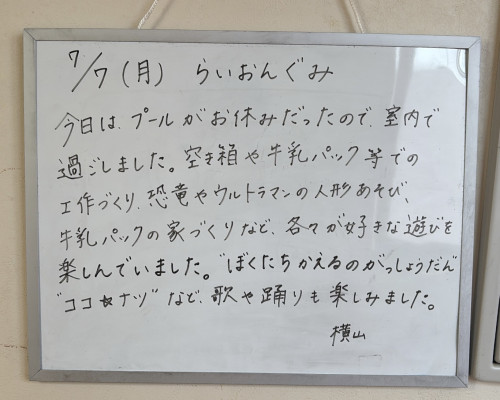 7/7(月) らいおんぐみ
今日は、プールがお休みだったので、室内で
過ごしました。空き箱や牛乳パック等での
工作づくり、恐竜やウルトラマンの人形あそび、
牛乳パックの家づくりなど、各々が好きな遊びを
楽しんでいました。"ぼくたちかえるのがっしょうだん"
"ココ☆ナツ"など、歌や踊りも楽しみました。
横山